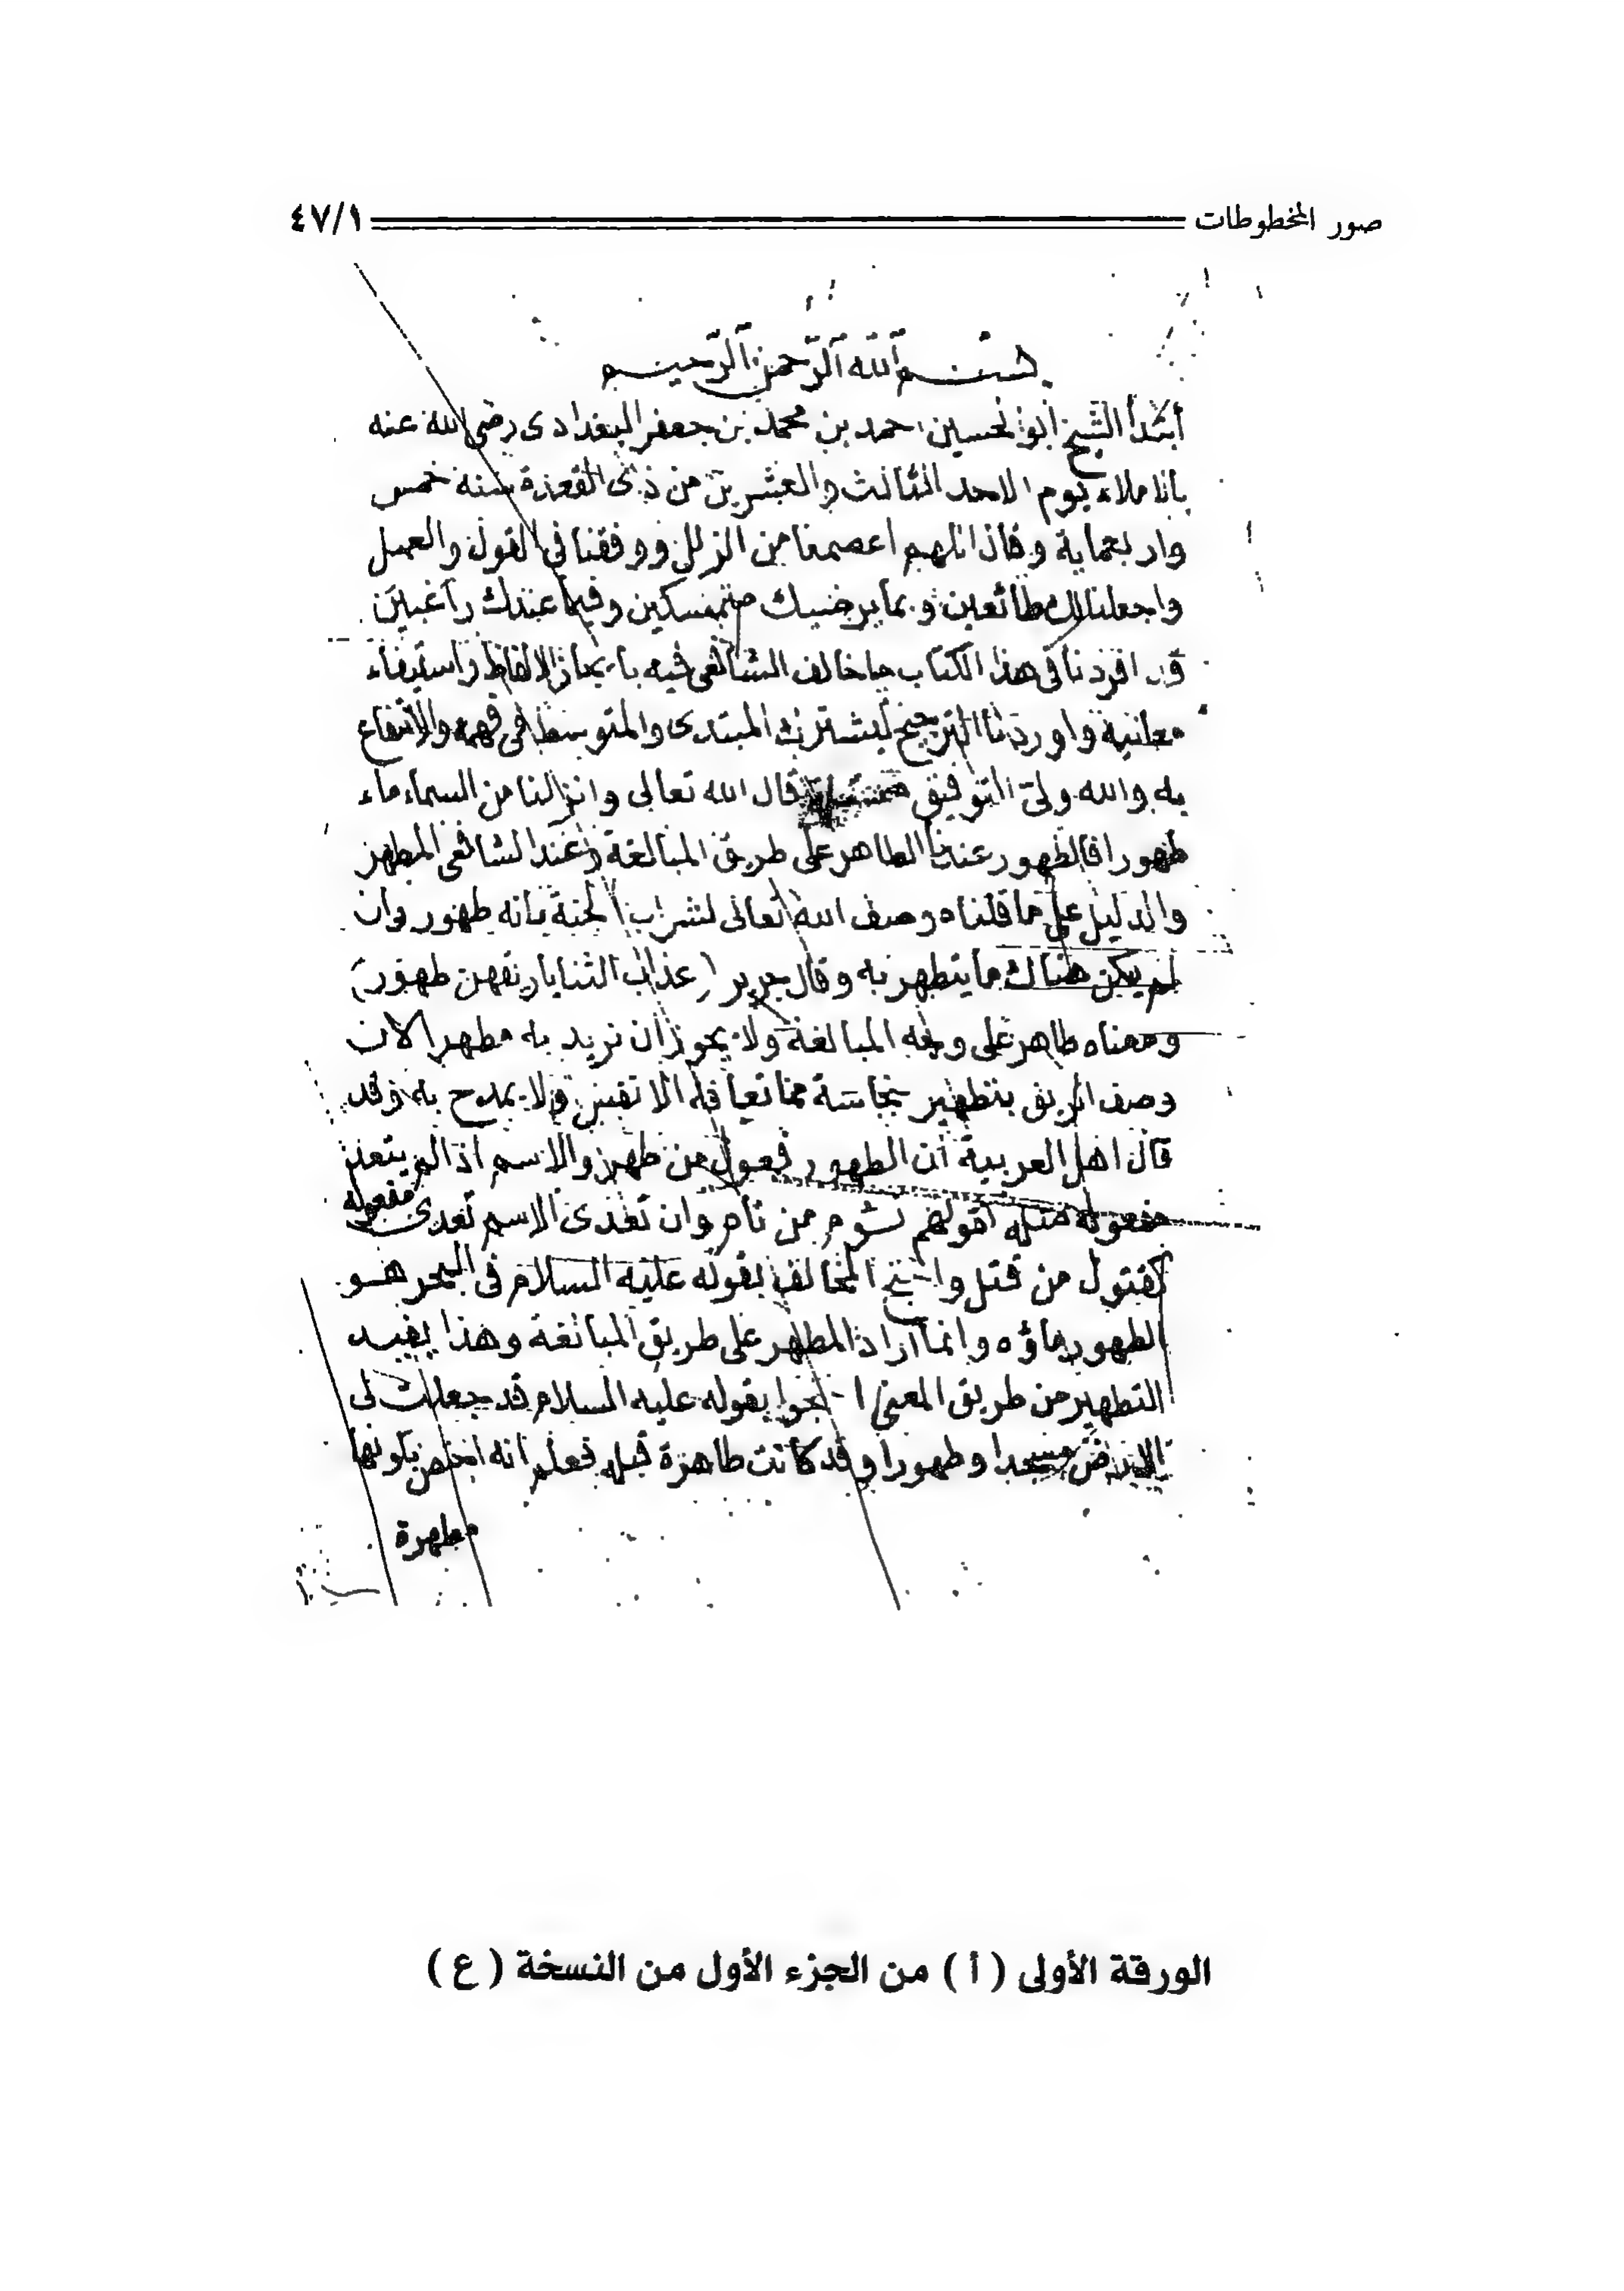 صور المخطوطات ٤٧/١
بسم الله الرحمن الرحيم
أبتدأ الشيخ ابو الحسين احمد بن محمد بن جعفر البغدادى رضى الله عنه
بالاملاء يوم الاحد الثالث والعشرين من ذى القعدة سنة خمس
واربعماية وقال اللهم اعصمنا من الزلل ووفقنا فى القول والعمل
واجعلنا لك طائعين وبما يرضيك متمسكين وفيما عندك راغبين
قد افردنا فى هذا الكتاب ما خالف الشافعى فيه بايجاز الالفاظ واستيفاء
معانيه واوردنا الترجيح ليشترك المبتدى والمتوسط فى فهمه والانتفاع
به والله ولى التوفيق قال الله تعالى وانزلنا من السماء ماء
طهورا فالطهور عندنا الطاهر على طريق المبالغة وعند الشافعى المطهر
والدليل على ما قلناه وصف الله تعالى لشراب الجنة بانه طهور وان
لم يكن هناك ما يتطهر به وقال جرير (عذاب الثنايا ريقهن طهور)
ومعناه طاهر على وجه المبالغة ولا يجوز ان نريد به مطهرا لان
وصف الريق بتطهير نجاسة مما تعافه الانفس ولا يمدح به وقد
قال اهل العربية ان الطهور فعول من طهر والاسم اذا لم يتعد
مفعوله مثله كقولهم نؤوم من نام وان تعدى الاسم تعدى مفعوله
كقتول من قتل واحتج المخالف بقوله عليه السلام فى البحر هو
الطهور ماؤه وانما اراد المطهر على طريق المبالغة وهذا يفيد
التطهير من طريق المعنى احتجوا بقوله عليه السلام قد جعلت لى
الارض مسجدا وطهورا وقد كانت طاهرة قبله فعلم انه اختص بكونها
مطهرة
الورقة الأولى ( أ ) من الجزء الأول من النسخة ( ع )